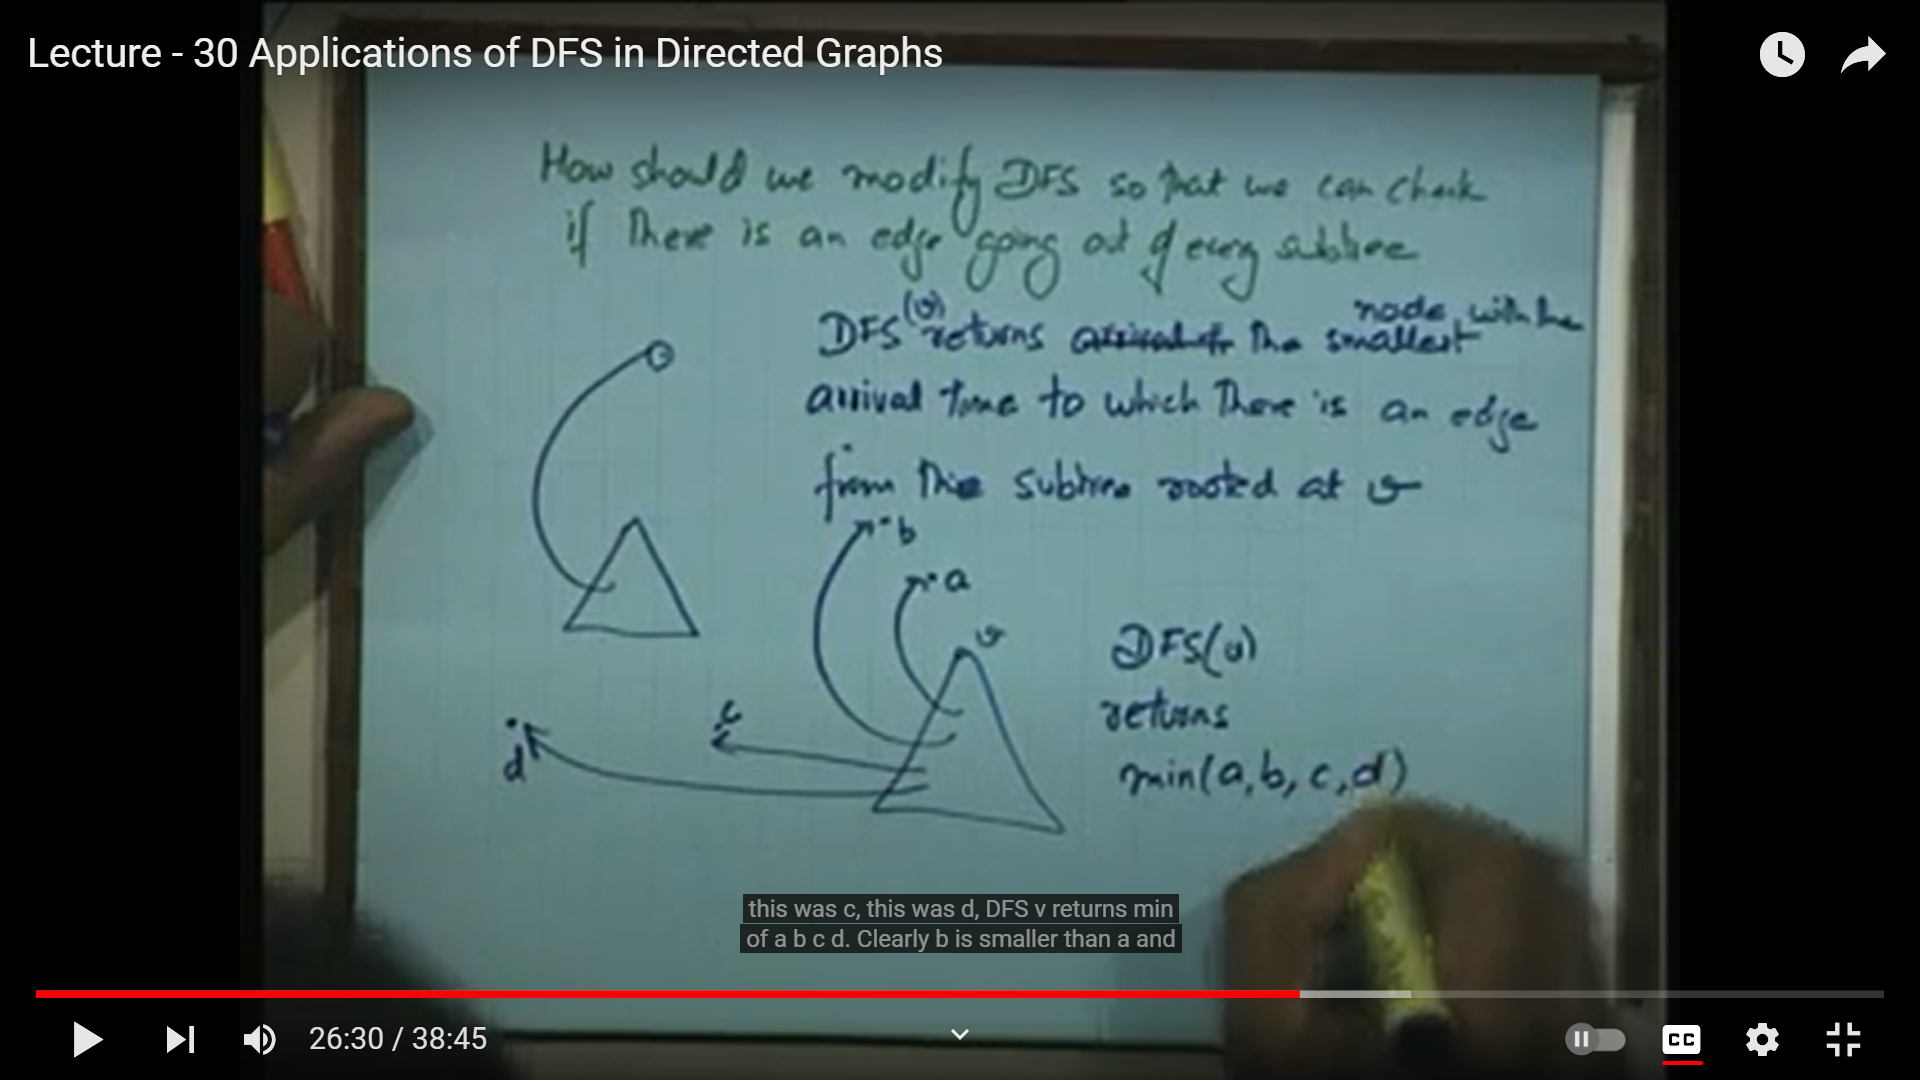 Lecture - 30 Applications of DFS in Directed Graphs
How should we modify DFS so that we can check
if there is an edge going out of every subtree
DFS(v) returns the smallest node with the
arrival time to which there is an edge
from this subtree rooted at v
b
a
v
c
d
DFS(v)
returns
min(a,b,c,d)
this was c, this was d, DFS v returns min
of a b c d. Clearly b is smaller than a and
26:30 / 38:45
CC